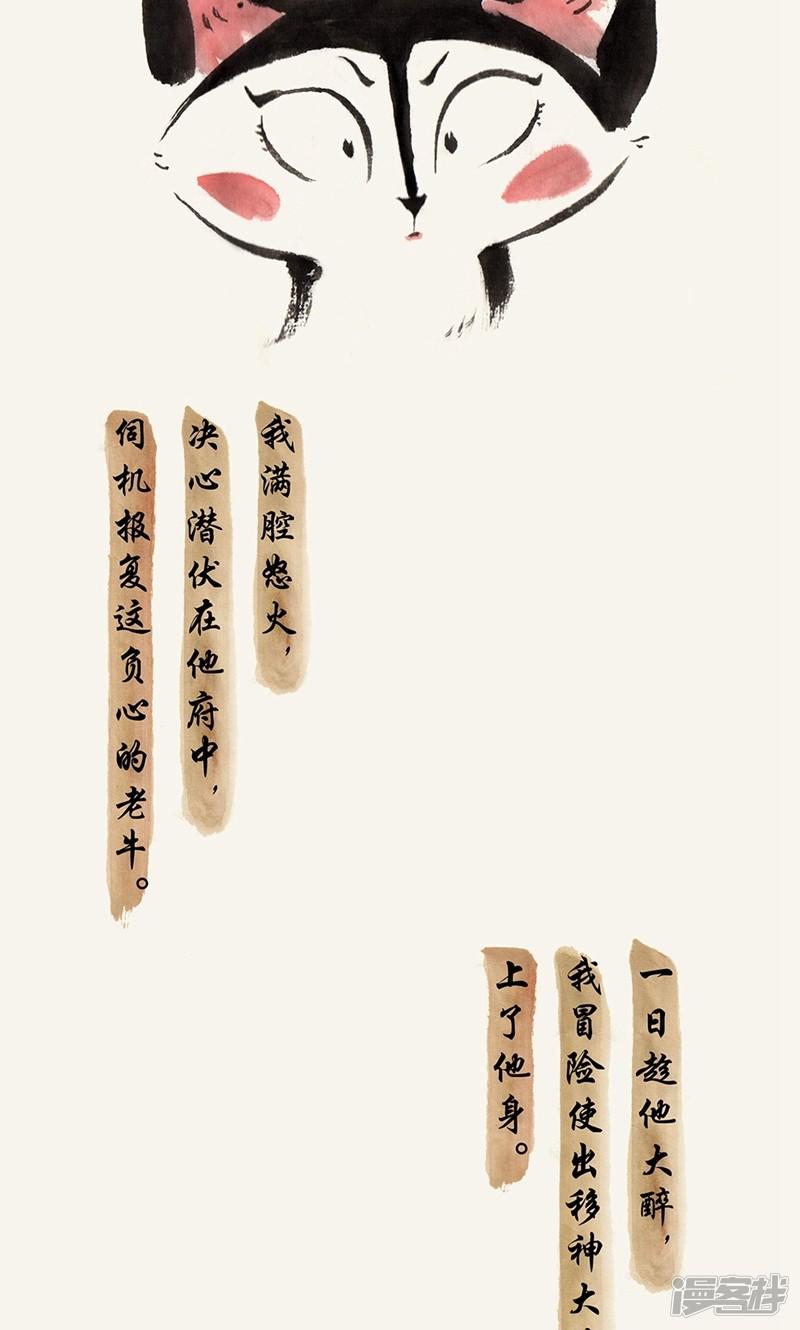 我满腔怒火，
决心潜伏在他府中，
伺机报复这负心的老牛。
一日趁他大醉，
我冒险使出移神大
上了他身。
漫客栈